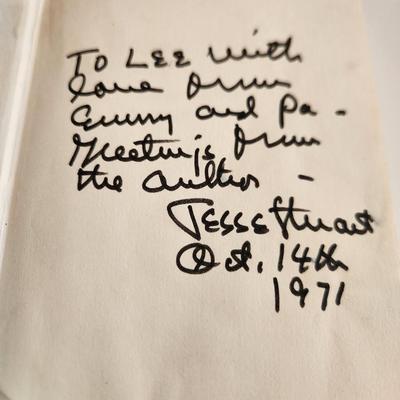 To Lee with
love from
and Pa -
Greetings from
the author -
Jesse Stuart
Oct. 14th
1971